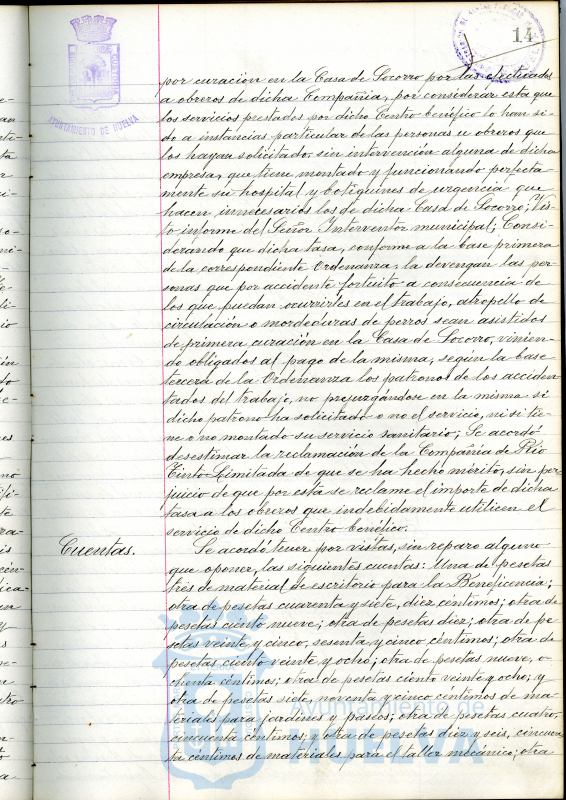 14
AYUNTAMIENTO DE HUELVA
por curación en la Casa de Socorro por las efectuadas
a obreros de dicha Compañia, por considerar esta que
los servicios prestados por dicho Centro benéfico lo han si-
do a instancias particular de las personas u obreros que
los hayan solicitado, sin intervención alguna de dicha
empresa, que tiene montado y funcionando perfecta
mente su hospital y botiquines de urgencia que
hacen innecesarios los de dicha Casa de Socorro; Vis-
to informe del Señor Interventor municipal; Consi-
derando que dicha tasa, conforme a la base primera
de la correspondiente Ordenanza, la devengan las per-
sonas que por accidente fortuito a consecuencia de
los que puedan ocurrirles en el trabajo, atropello de
circulación o mordeduras de perros sean asistidos
de primera curación en la Casa de Socorro, vinien-
do obligados al pago de la misma, según la base
tercera de la Ordenanza los patronos de los acciden
tados del trabajo, no prejuzgándose en la misma si
dicho patrono ha solicitado o no el servicio, ni si tie-
ne o no montado su servicio sanitario; Se acordó
desestimar la reclamación de la Compañia de Rio
Tinto Limitada de que se ha hecho mérito, sin per
juicio de que por esta se reclame el importe de dicha
tasa a los obreros que indebidamente utilicen el
servicio de dicho Centro benéfico.
Cuentas.
Se acordó tener por vistas, sin reparo alguno
que oponer, las siguientes cuentas: Una de pesetas
tres de material de escritorio para la Beneficencia;
otra de pesetas cuarenta y siete, diez céntimos; otra de
pesetas ciento nueve; otra de pesetas diez; otra de pe
setas veinte y cinco, sesenta y cinco céntimos; otra de
pesetas ciento veinte y ocho; otra de pesetas nueve, o-
chenta céntimos; otra de pesetas ciento veinte y ocho; y
otra de pesetas siete, noventa y cinco céntimos de ma
teriales para jardines y paseos; otra de pesetas cuatro,
cincuenta céntimos; y otra de pesetas diez y seis, cincuen
ta céntimos de materiales para el taller mecánico; otra
Ayuntamiento de
HUELVA